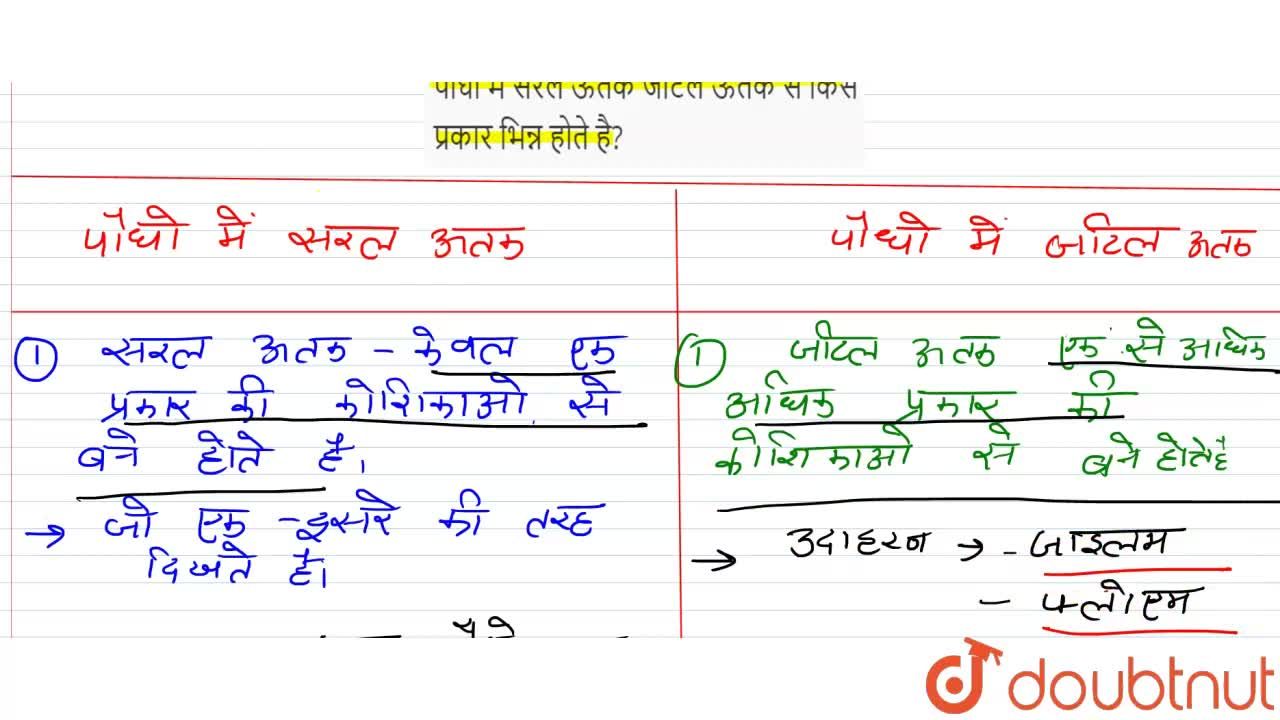 पौधों में सरल ऊतक जटिल ऊतक से किस
प्रकार भिन्न होते है?
पौधो में सरल अतक
पौधो में जटिल अतक
① सरल अतक – केवल एक
प्रकार की कोशिकाओ से
बने होते है।
→ जो एक -दूसरे की तरह
दिखते है।
① जटिल अतक एक से अधिक
अधिक प्रकार की
कोशिकाओ से बने होते है
→ उदाहरन → - जाइलम
- फ्लोएम
doubtnut